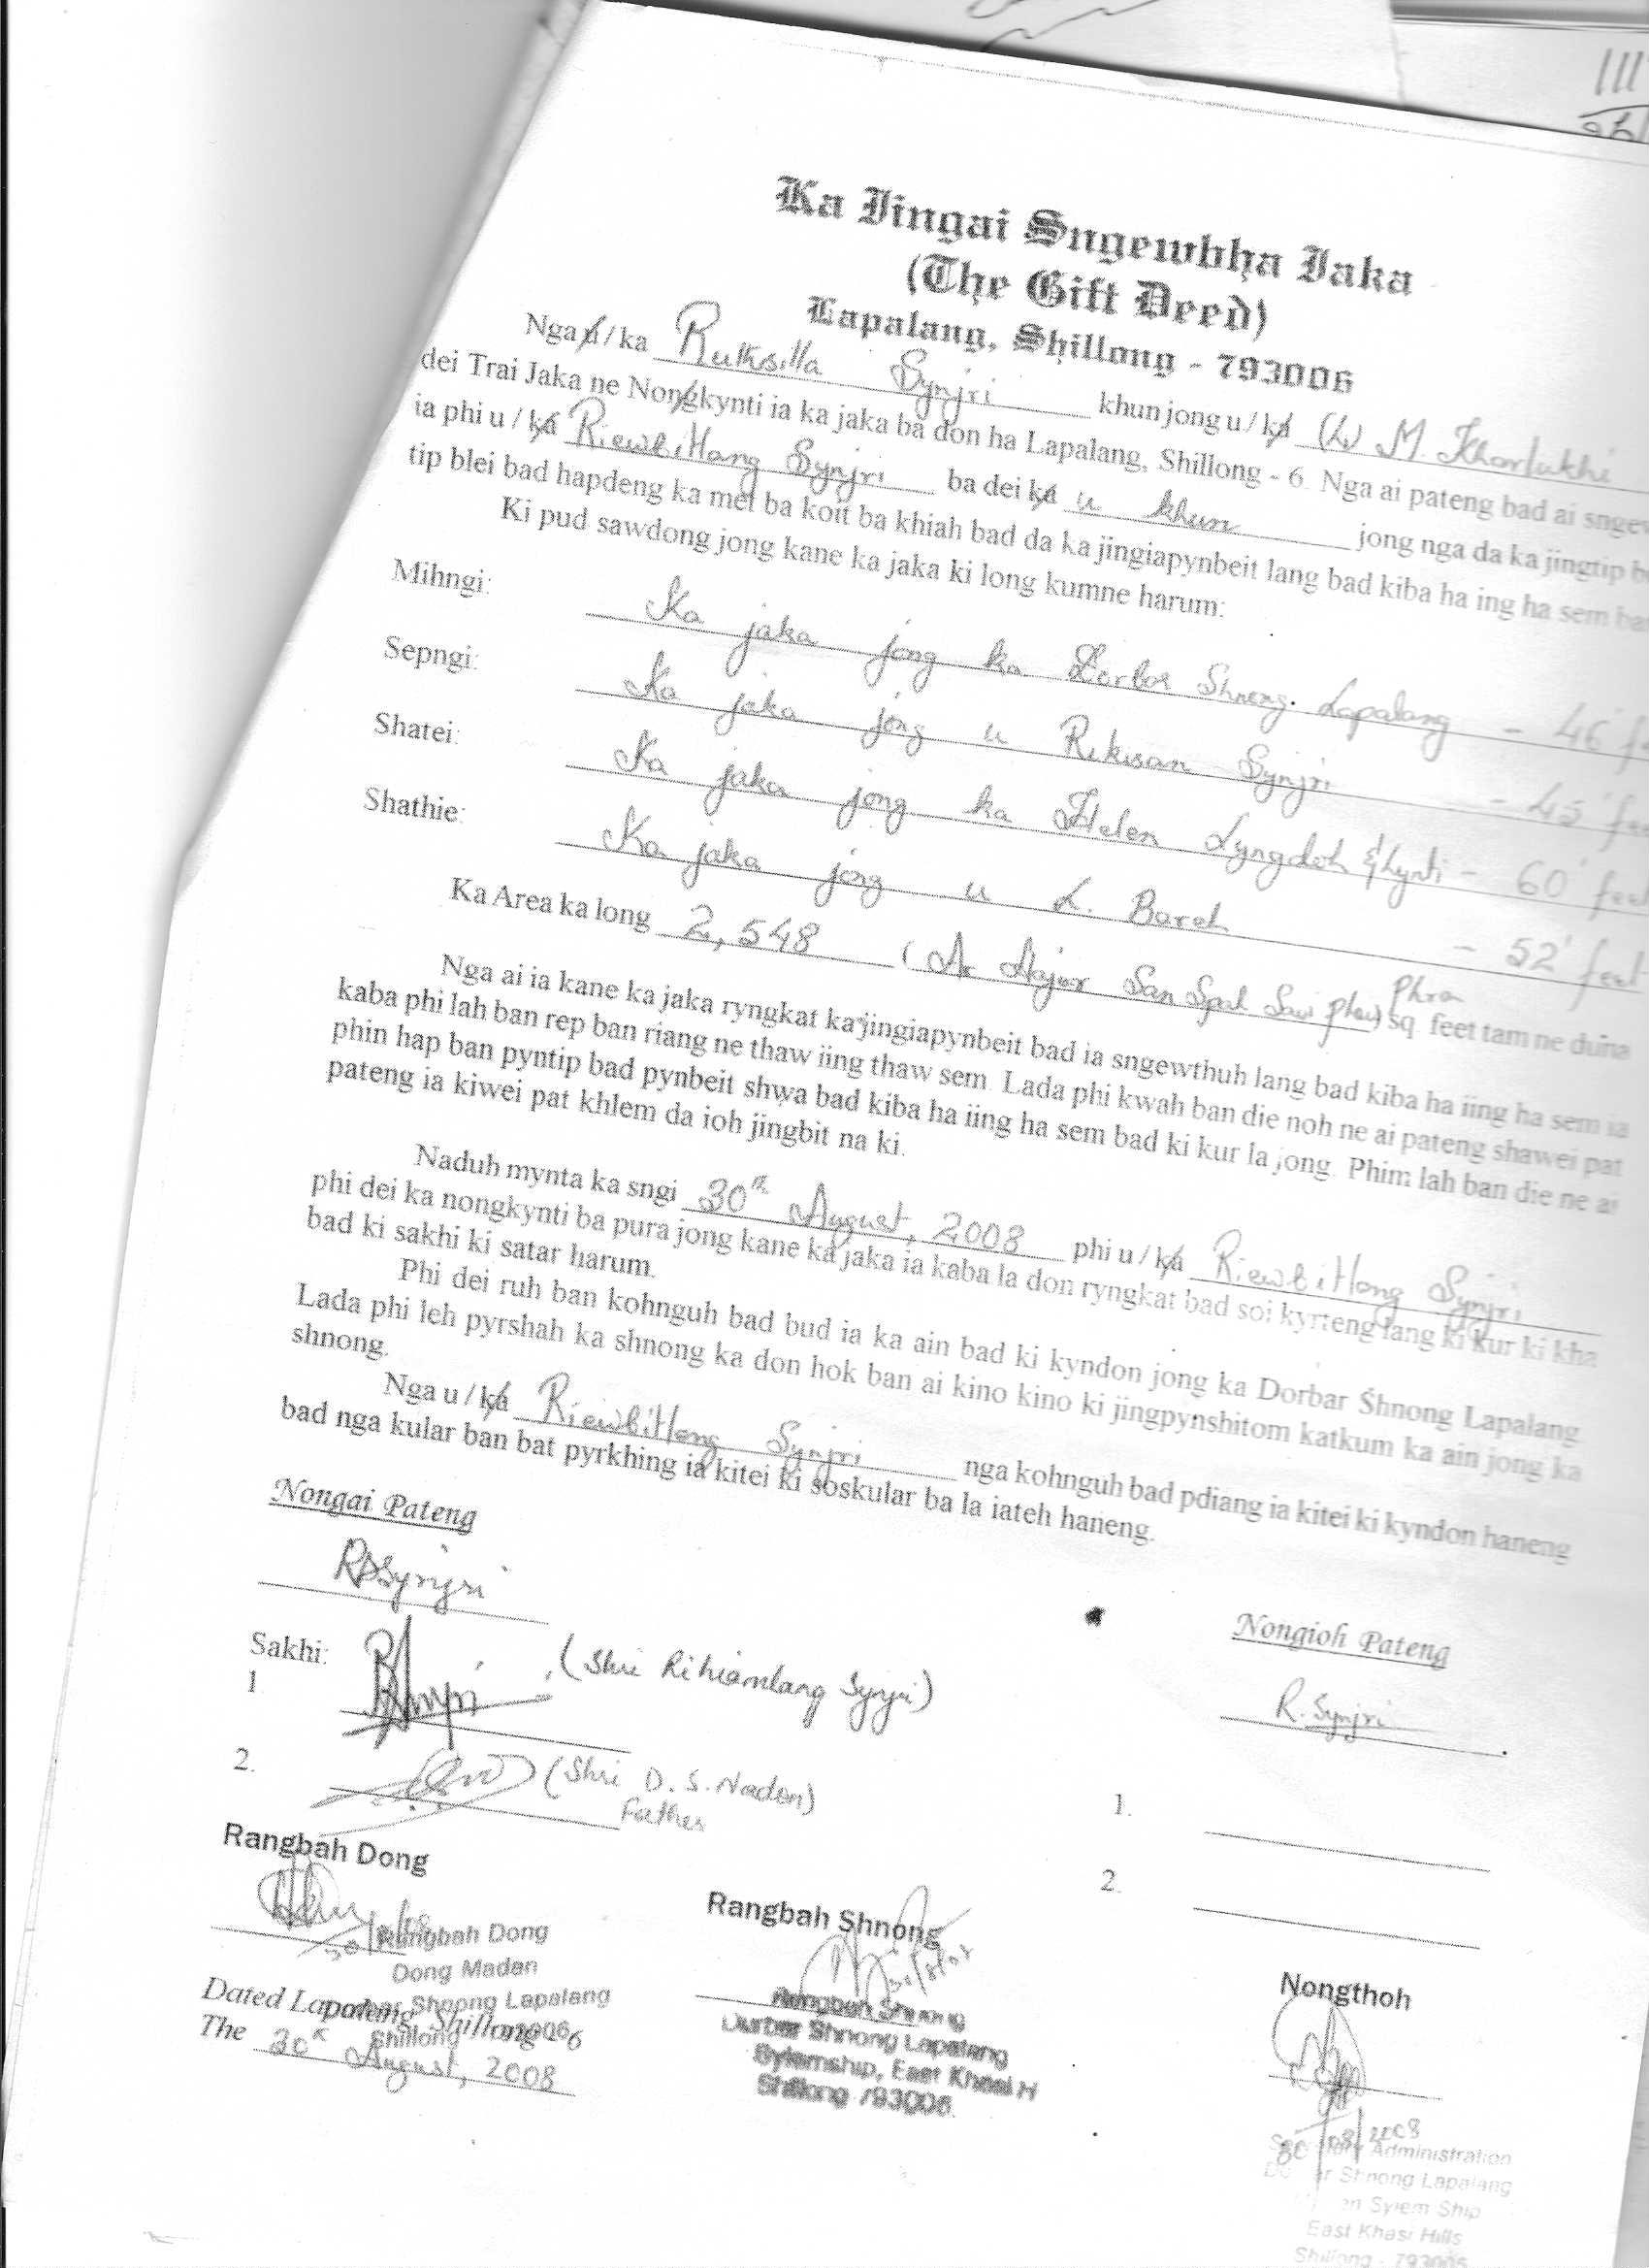 Ka Jingai Sngewbha Jaka
(The Gift Deed)
Lapalang, Shillong - 793006
Nga u / ka Ruthsilla Synjri khun jong u / ka (L) M. Kharlukhi
dei Trai Jaka ne Nongkynti ia ka jaka ba don ha Lapalang, Shillong - 6. Nga ai pateng bad ai
ia phi u / ka RiewbiHang Synjri ba dei ka u khun jong nga da ka jingtip
tip blei bad hapdeng ka met ba koit ba khiah bad da ka jingiapynbeit lang bad kiba ha ing ha sem
Ki pud sawdong jong kane ka jaka ki long kumne harum:
Mihngi: Ka jaka jong ka Dorbar Shnong. Lapalang - 46'
Sepngi: Ka jaka jong u Rikisan Synjri - 45'
Shatei: Ka jaka jong ka Helen Lyngdoh & Lynti - 60' feet
Shathie: Ka jaka jong u L. Bareh - 52' feet
Ka Area ka long 2,548 (Ar Hajar San Spah Saw phew Phra) sq. feet tam ne duna
Nga ai ia kane ka jaka ryngkat ka jingiapynbeit bad ia sngewthuh lang bad kiba ha iing ha sem ia
kaba phi lah ban rep ban riang ne thaw iing thaw sem. Lada phi kwah ban die noh ne ai pateng shawei pat
phin hap ban pyntip bad pynbeit shwa bad kiba ha iing ha sem bad ki kur la jong. Phim lah ban die ne ai
pateng ia kiwei pat khlem da ioh jingbit na ki.
Naduh mynta ka sngi 30th August, 2008 phi u / ka RiewbiHang Synjri
phi dei ka nongkynti ba pura jong kane ka jaka ia kaba la don ryngkat bad soi kyrteng lang ki kur ki kha
bad ki sakhi ki satar harum.
Phi dei ruh ban kohnguh bad bud ia ka ain bad ki kyndon jong ka Dorbar Shnong Lapalang.
Lada phi leh pyrshah ka shnong ka don hok ban ai kino kino ki jingpynshitom katkum ka ain jong ka
shnong.
Nga u / ka RiewbiHang Synjri nga kohnguh bad pdiang ia kitei ki kyndon haneng
bad nga kular ban bat pyrkhing ia kitei ki soskular ba la iateh haneng.
Nongai Pateng
RSynjri
Nongioh Pateng
R. Synjri
Sakhi:
1 (Shri Rihiamlang Synjri)
2. (Shri D. S. Nadon)
Father
1.
2.
Rangbah Dong
30/8/08
Rangbah Dong
Dong Madan
Dorbar Shnong Lapalang
Shillong 793006
Dated Lapalang, Shillong - 6
The 30th August, 2008
Rangbah Shnong
30/8/08
Rangbah Shnong
Durbar Shnong Lapalang
Sylemship, East Khasi H
Shillong 793006.
Nongthoh
30/08/2008
Administration
Shnong Lapalang
Syiem Ship
East Khasi Hills
Shillong - 793006